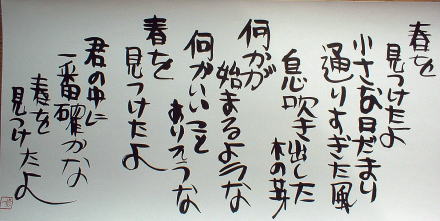 春を
見つけたよ
小さな日だまり
通りすぎた風
息吹き出した
木の芽
何かが
始まるような
何かいいこと
ありそうな
春を
見つけたよ
君の中に
一番確かな
春を
見つけたよ